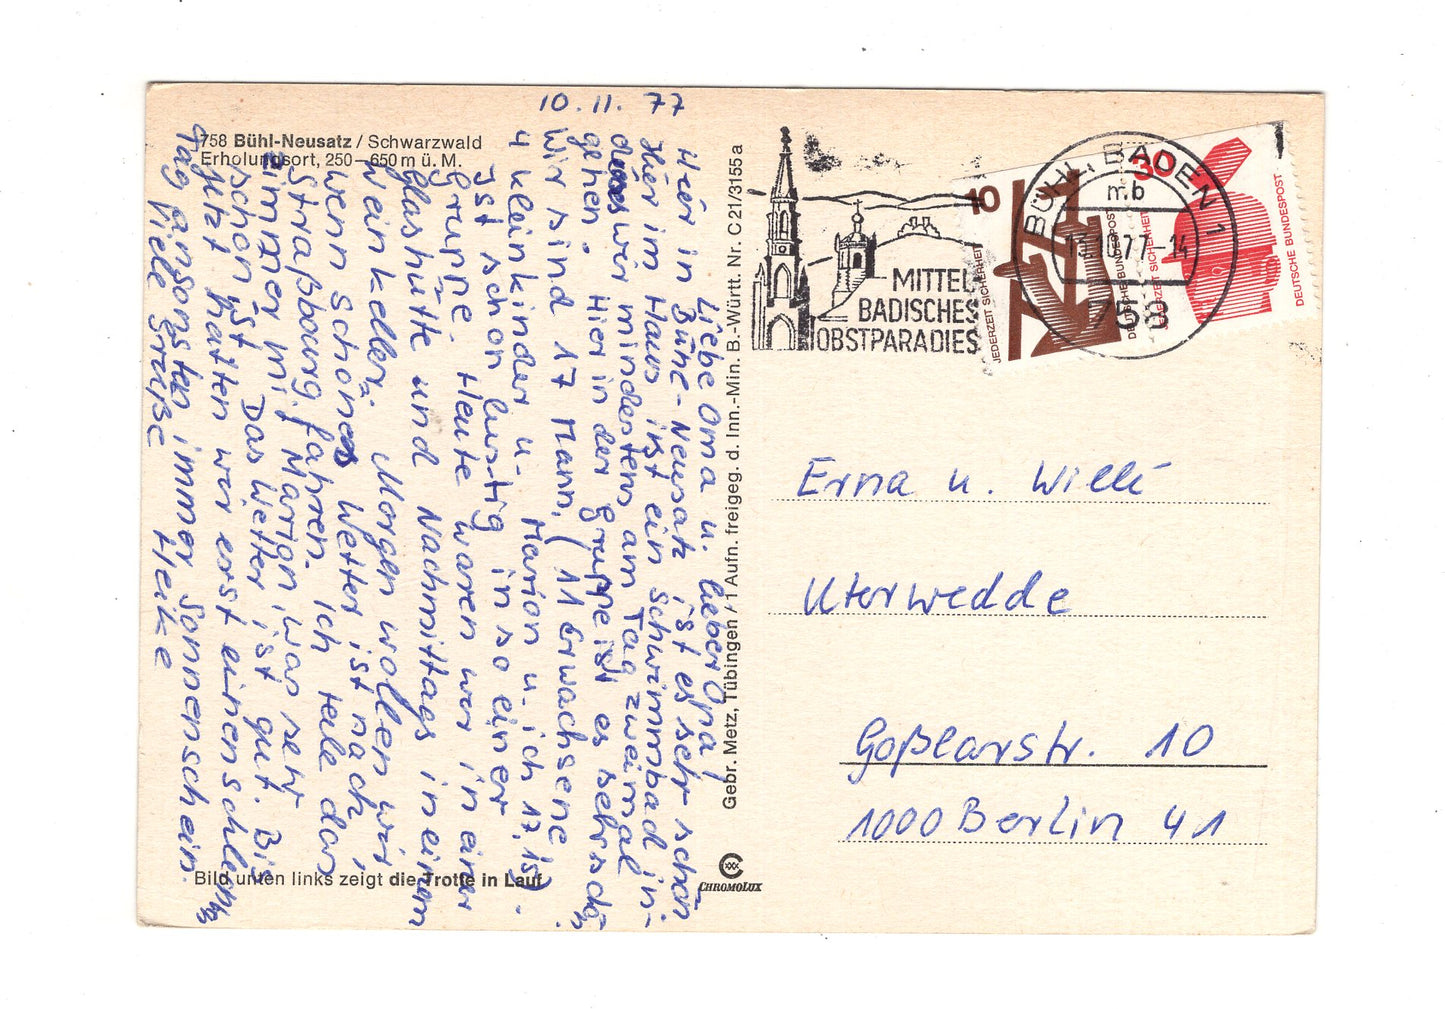 10.11.77
Liebe Oma u. lieber Opa,
Hier in Bühl-Neusatz ist es sehr schön
Hier im Haus ist ein Schwimmbad in-
dem wir mindestens am Tag zweimal
gehen. Hier in der Gruppe ist es sehr schön
Wir sind 17 Mann, (11 Erwachsene
4 Kleinkinder u. Marion u. ich 17, 15).
Ist schon lustig in so einer
Gruppe. Heute waren wir in einer
Glashütte und Nachmittags in einem
Weinkeller. Morgen wollen wir
wenn schones Wetter ist nach
Straßbourg fahren. Ich teile das
Zimmer mi. Marion was sehr
schön ist. Das Wetter ist gut. Bis
jetzt hatten wir erst einen schlechten
Tag ansonsten immer Sonnenschein.
Viele Grüße Heike
758 Bühl-Neusatz / Schwarzwald
Erholungsort, 250–650 m ü. M.
Bild unten links zeigt die Trotte in Lauf
Gebr. Metz, Tübingen / 1 Aufn. freigeg. d. Inn.-Min. B.-Württ. Nr. C 21/3155 a
CHROMOLUX
MITTEL
BADISCHES
OBSTPARADIES
BÜHL, BADEN 1
mb
-14
758
10
JEDERZEIT SICHERHEIT
DEUTSCHE BUNDESPOST
30
JEDERZEIT SICHERHEIT
DEUTSCHE BUNDESPOST
Erna u. Willi
Uterwedde
Goßlarstr. 10
1000 Berlin 41